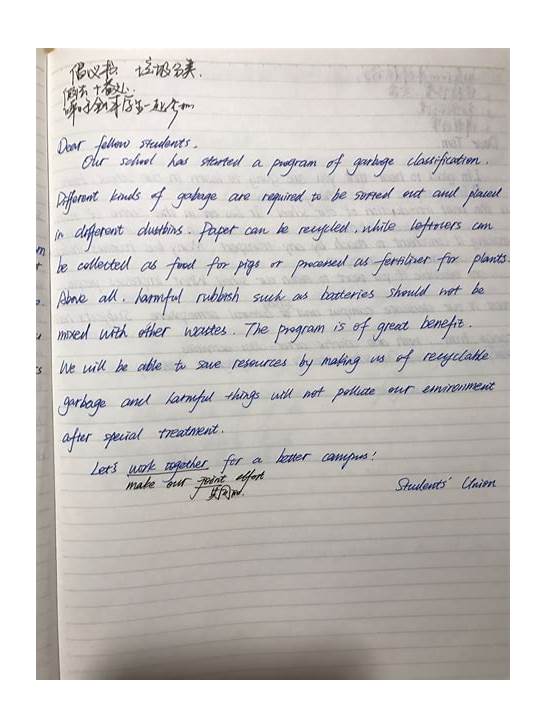 倡议书 垃圾分类.
Dear fellow students,
Our school has started a program of garbage classification.
Different kinds of gabage are required to be sorted out and placed
in different dustbins. Paper can be recycled, while leftovers can
be collected as food for pigs or processed as fertilizer for plants.
Above all, harmful rubbish such as batteries should not be
mixed with other wastes. The program is of great benefit.
We will be able to save resources by making us of recyclable
garbage and harmful things will not pollute our environment
after special treatment.
Let's work together for a better campus!
make our joint effort
共同
Students' Union